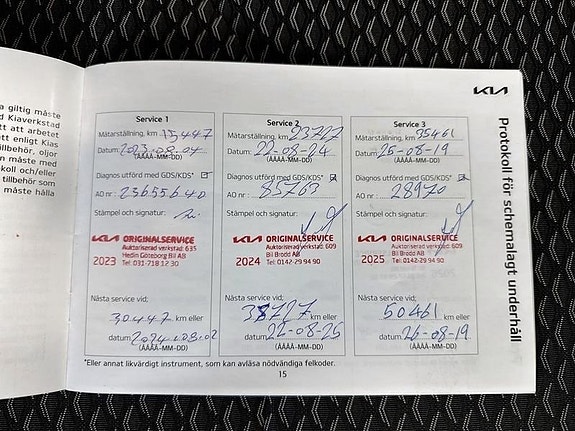 a giltig måste
d Kiaverkstad
tt att arbetet
ett enligt Kias
illbehör, oljor
n måste med
koll och/eller
tillbehör som
måste hålla
KIA
Protokoll för schemalagt underhåll
Service 1
Mätarställning, km 15447
Datum: 2023-08-04
(ÅÅÅÅ-MM-DD)
Diagnos utförd med GDS/KDS*
AO nr : 23655640
Stämpel och signatur:
KIA ORIGINALSERVICE
Auktoriserad verkstad 635
Hedin Göteborg Bil AB
2023 Tel: 031-718 12 30
Nästa service vid;
30447 km eller
datum 2024-08-02
(ÅÅÅÅ-MM-DD)
Service 2
Mätarställning, km 23727
Datum: 22-08-24
(ÅÅÅÅ-MM-DD)
Diagnos utförd med GDS/KDS*
AO nr : 85763
Stämpel och signatur:
KIA ORIGINALSERVICE
Auktoriserad verkstad 609
Bil Brodd AB
2024 Tel: 0142-29 94 90
Nästa service vid;
38727 km eller
datum 22-08-25
(ÅÅÅÅ-MM-DD)
Service 3
Mätarställning, km 35461
Datum: 25-08-19
(ÅÅÅÅ-MM-DD)
Diagnos utförd med GDS/KDS*
AO nr : 28970
Stämpel och signatur:
KIA ORIGINALSERVICE
Auktoriserad verkstad 609
Bil Brodd AB
2025 Tel: 0142-29 94 90
Nästa service vid;
50461 km eller
datum 26-08-19
(ÅÅÅÅ-MM-DD)
*Eller annat likvärdigt instrument, som kan avläsa nödvändiga felkoder.
15